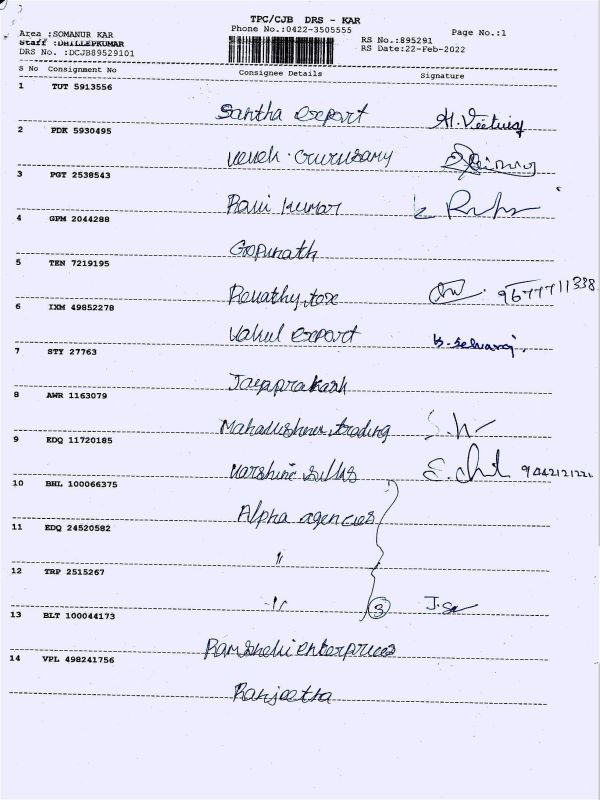 TPC/CJB DRS - KAR
Area :SOMANUR KAR
Phone No.:0422-3505555
Page No.:1
Staff :DHILLEPKUMAR
RS No.:895291
DRS No. :DCJB89529101
RS Date:22-Feb-2022
S No Consignment No Consignee Details Signature
1 TUT 5913556
Santha export
2 PDK 5930495
3 PGT 2538543
Ravi kumar
4 GPM 2044288
Gopinath
5 TEN 7219195
Revathy tex 9677711338
6 IXM 49852278
Vahul export
7 STY 27763
Jayaprakash
8 AWR 1163079
Mahavishnu trading
9 EDQ 11720185
Varshini silks
10 BHL 100066375
Alpha agencies
11 EDQ 24520582
"
12 TRP 2515267
-"- 3
13 BLT 100044173
14 VPL 498241756
Ranjeetha